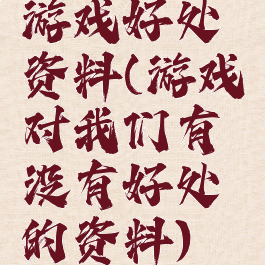 游戏好处
资料(游戏
对我们有
没有好处
的资料)